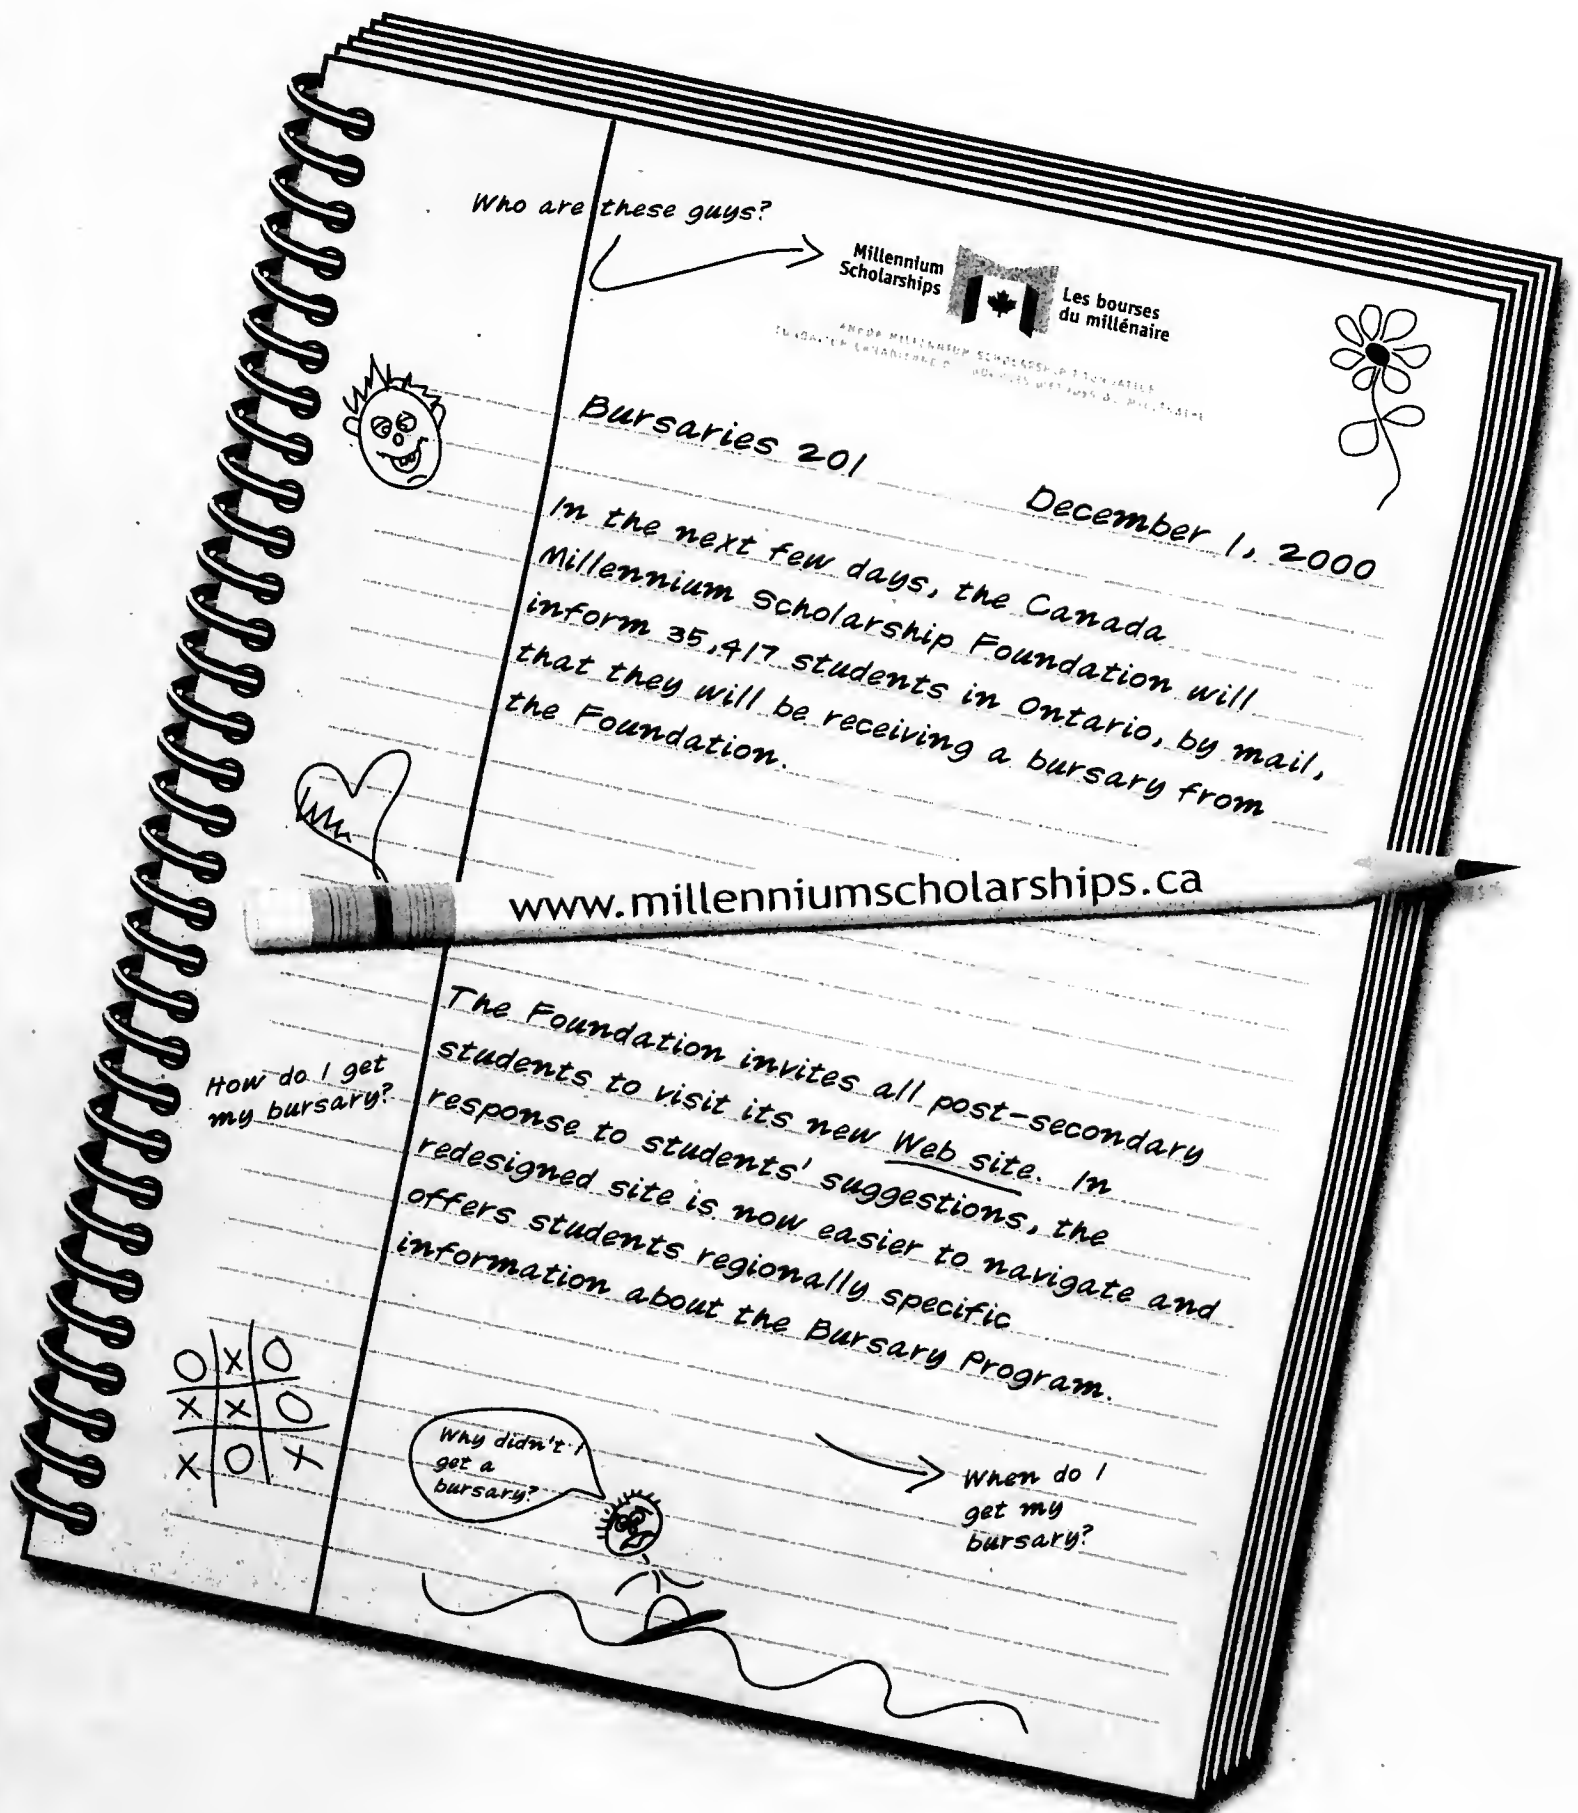 Who are these guys?
Millennium
Scholarships
Les bourses
du millénaire
Bursaries 201
December 1, 2000
In the next few days, the Canada
Millennium Scholarship Foundation will
inform 35,417 students in Ontario, by mail,
that they will be receiving a bursary from
the Foundation.
www.millenniumscholarships.ca
The Foundation invites all post-secondary
students to visit its new Web site. In
response to students' suggestions, the
redesigned site is now easier to navigate and
offers students regionally specific
information about the Bursary Program.
How do I get
my bursary?
O X O
X X O
X O X
Why didn't I
get a
bursary?
When do I
get my
bursary?